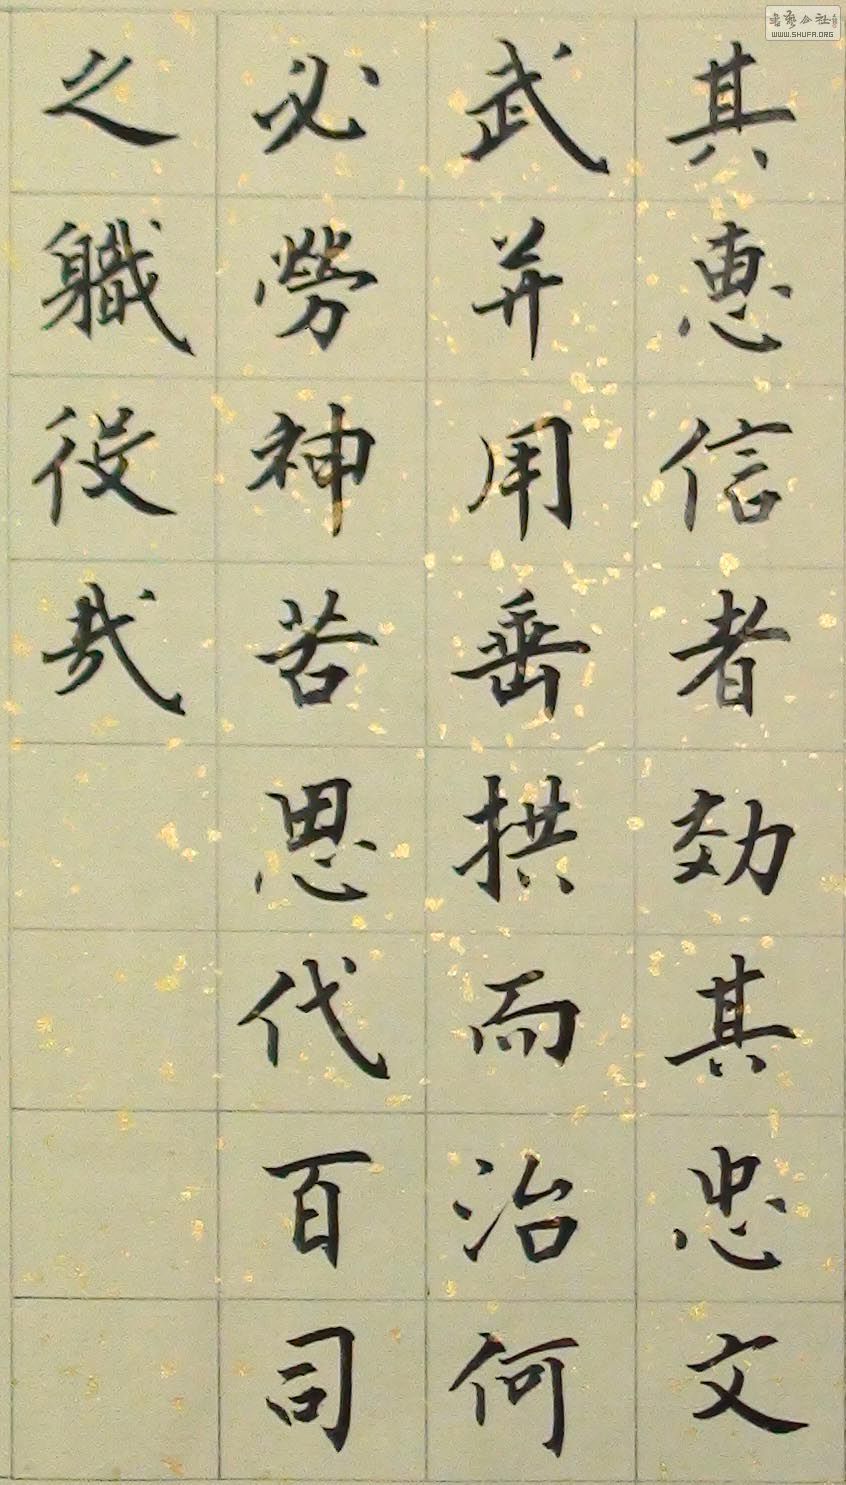 其惠信者効其忠文
武并用垂拱而治何
必勞神苦思代百司
之職役哉
WWW.SHUFA.ORG